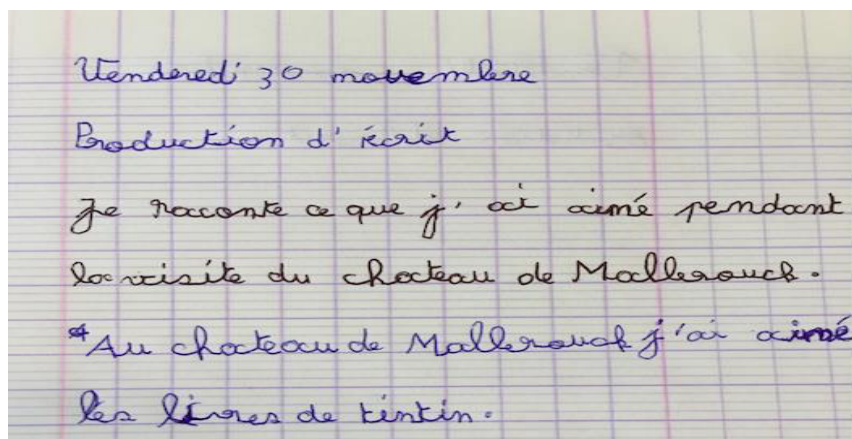 Vendredi 30 novembre
Production d'écrit
Je raconte ce que j'ai aimé pendant
la visite du chateau de Mallerouck.
*Au chateau de Mallerouck j'ai aimé
les livres de tintin.